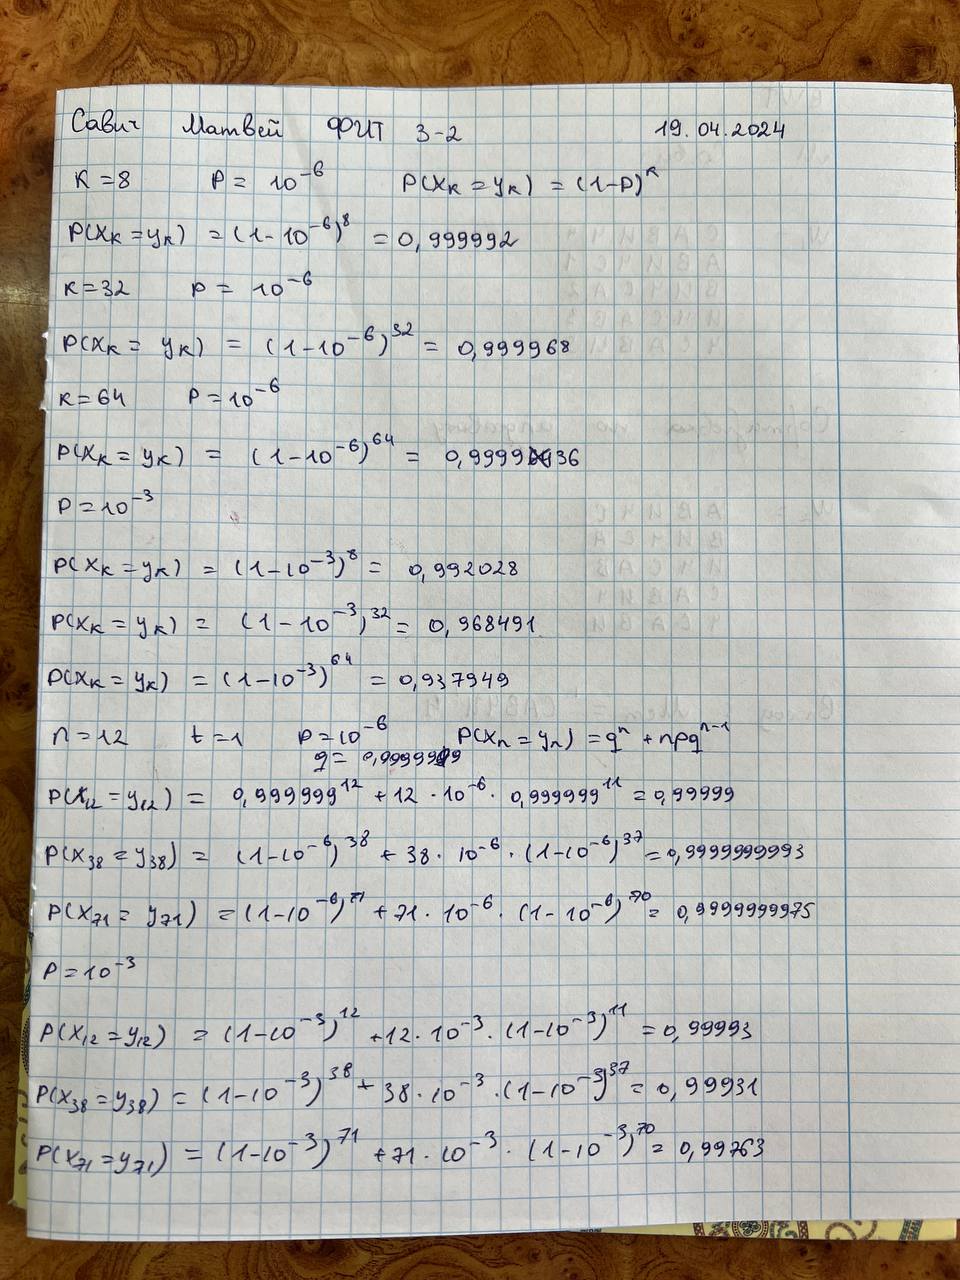 Савич Матвей ФИТ 3-2 19.04.2024
K = 8 P = 10^-6 P(Xк = Yк) = (1-P)^к
P(Xк = Yк) = (1-10^-6)^8 = 0,999992
K = 32 P = 10^-6
P(Xк = Yк) = (1-10^-6)^32 = 0,999968
K = 64 P = 10^-6
P(Xк = Yк) = (1-10^-6)^64 = 0,999936
P = 10^-3
P(Xк = Yк) = (1-10^-3)^8 = 0,992028
P(Xк = Yк) = (1-10^-3)^32 = 0,968491
P(Xк = Yк) = (1-10^-3)^64 = 0,937949
n = 12 t = 1 P = 10^-6 P(Xn = Yn) = q^n + npq^n-1
q = 0,999999
P(X12 = Y12) = 0,999999^12 + 12 · 10^-6 · 0,999999^11 = 0,99999
P(X38 = Y38) = (1-10^-6)^38 + 38 · 10^-6 · (1-10^-6)^37 = 0,9999999993
P(X71 = Y71) = (1-10^-6)^71 + 71 · 10^-6 · (1-10^-6)^70 = 0,9999999975
P = 10^-3
P(X12 = Y12) = (1-10^-3)^12 + 12 · 10^-3 · (1-10^-3)^11 = 0,99993
P(X38 = Y38) = (1-10^-3)^38 + 38 · 10^-3 · (1-10^-3)^37 = 0,99931
P(X71 = Y71) = (1-10^-3)^71 + 71 · 10^-3 · (1-10^-3)^70 = 0,99763